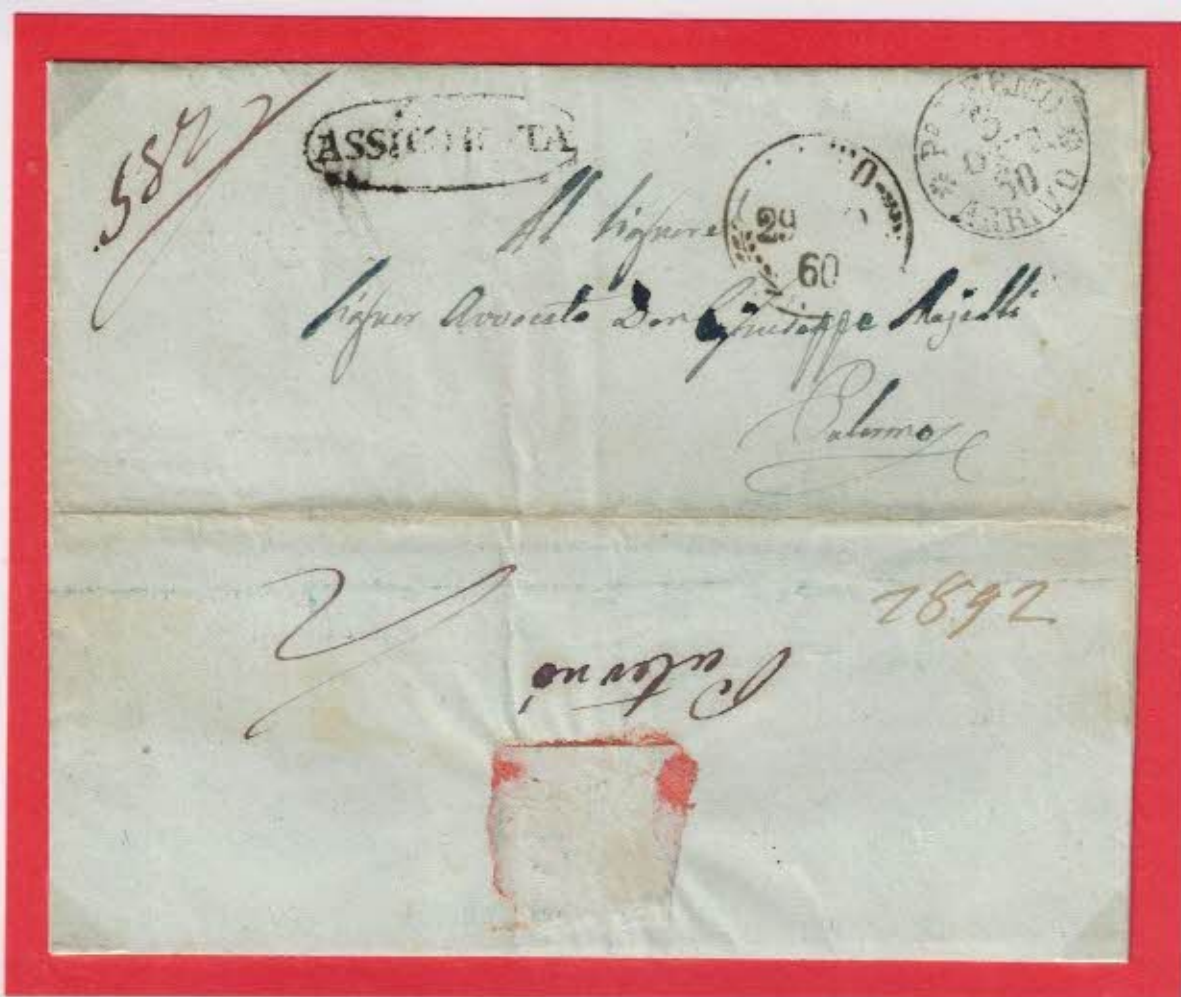 587
ASSICURATA
29
60
PALERMO
60
ARRIVO
Al Signore
Signor Avvocato Don Giuseppe
Palermo
2892
Paternò